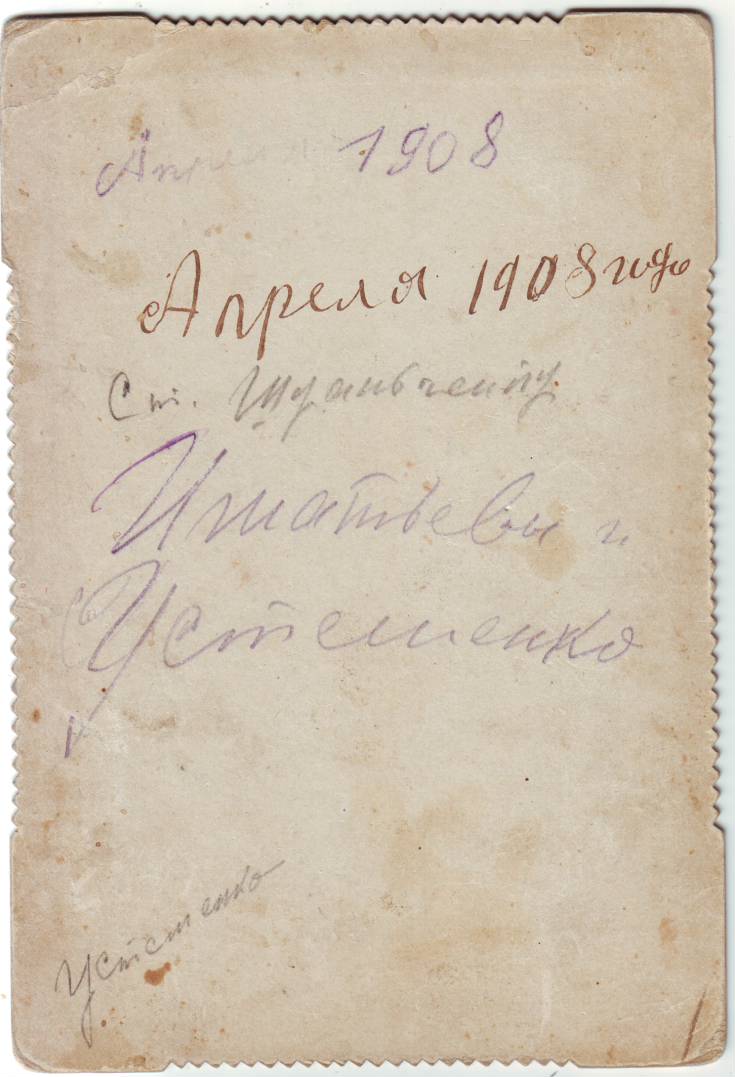 Апреля 1908
Апреля 1908 года
Ст.
Игнатьевы и
Устеменко
Устеменко